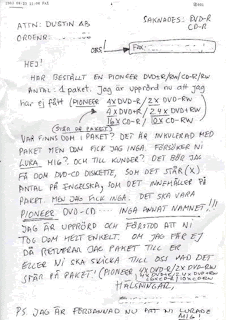 ATTN: DUSTIN AB
SAKNADES: DVD-R
CD-R
ORDERNR:
OBS
FAX:
HEJ!
HAR BESTÄLLT EN PIONEER DVD+R/RW-CD-R/RW
ANTAL 1 PAKET. Jag är UPPRÖRD NU ATT JAG
HAR EJ FÅTT (PIONEER 4X DVD-R/2X DVD-RW
4X DVD+R/2.4X DVD+RW
16X CD-R/10X CD-RW
VAR FINNS DOM I PAKET? DET ÄR INKLUERAD MED
PAKET MEN DOM FICK JAG INGA. FÖRSÖKER NI
LURA MIG? OCH TILL KUNDER? DET BÖR JAG
FÅ DOM DVD-CD DISKETTE, SOM DET STÅR (X)
ANTAL PÅ ENGELSKA, SOM DET INNEHÅLLER PÅ
PAKET MEN JAG FICK INGA. DET SKA VARA
PIONEER DVD-CD.... INGA ANNAT NAMNET!!!
JAG ÄR UPPRÖRD OCH FÖRSTOD ATT NI
TOG DOM HELT ENKELT. OM JAG FÅR EJ
DÅ RETURERAR JAG PAKET TILL ER
ELLER NI SKA SKICKA TILL OSS VAD DET
STÅR PÅ PAKET! (PIONEER 4X DVD-R/2X DVD-RW
4X DVD+R/2.4X DVD+RW
16X CD-R/10X CD-RW
HÄLSNINGAR,
PS JAG ÄR FÖRBANNAD NU ATT NI LURADE
MIG!